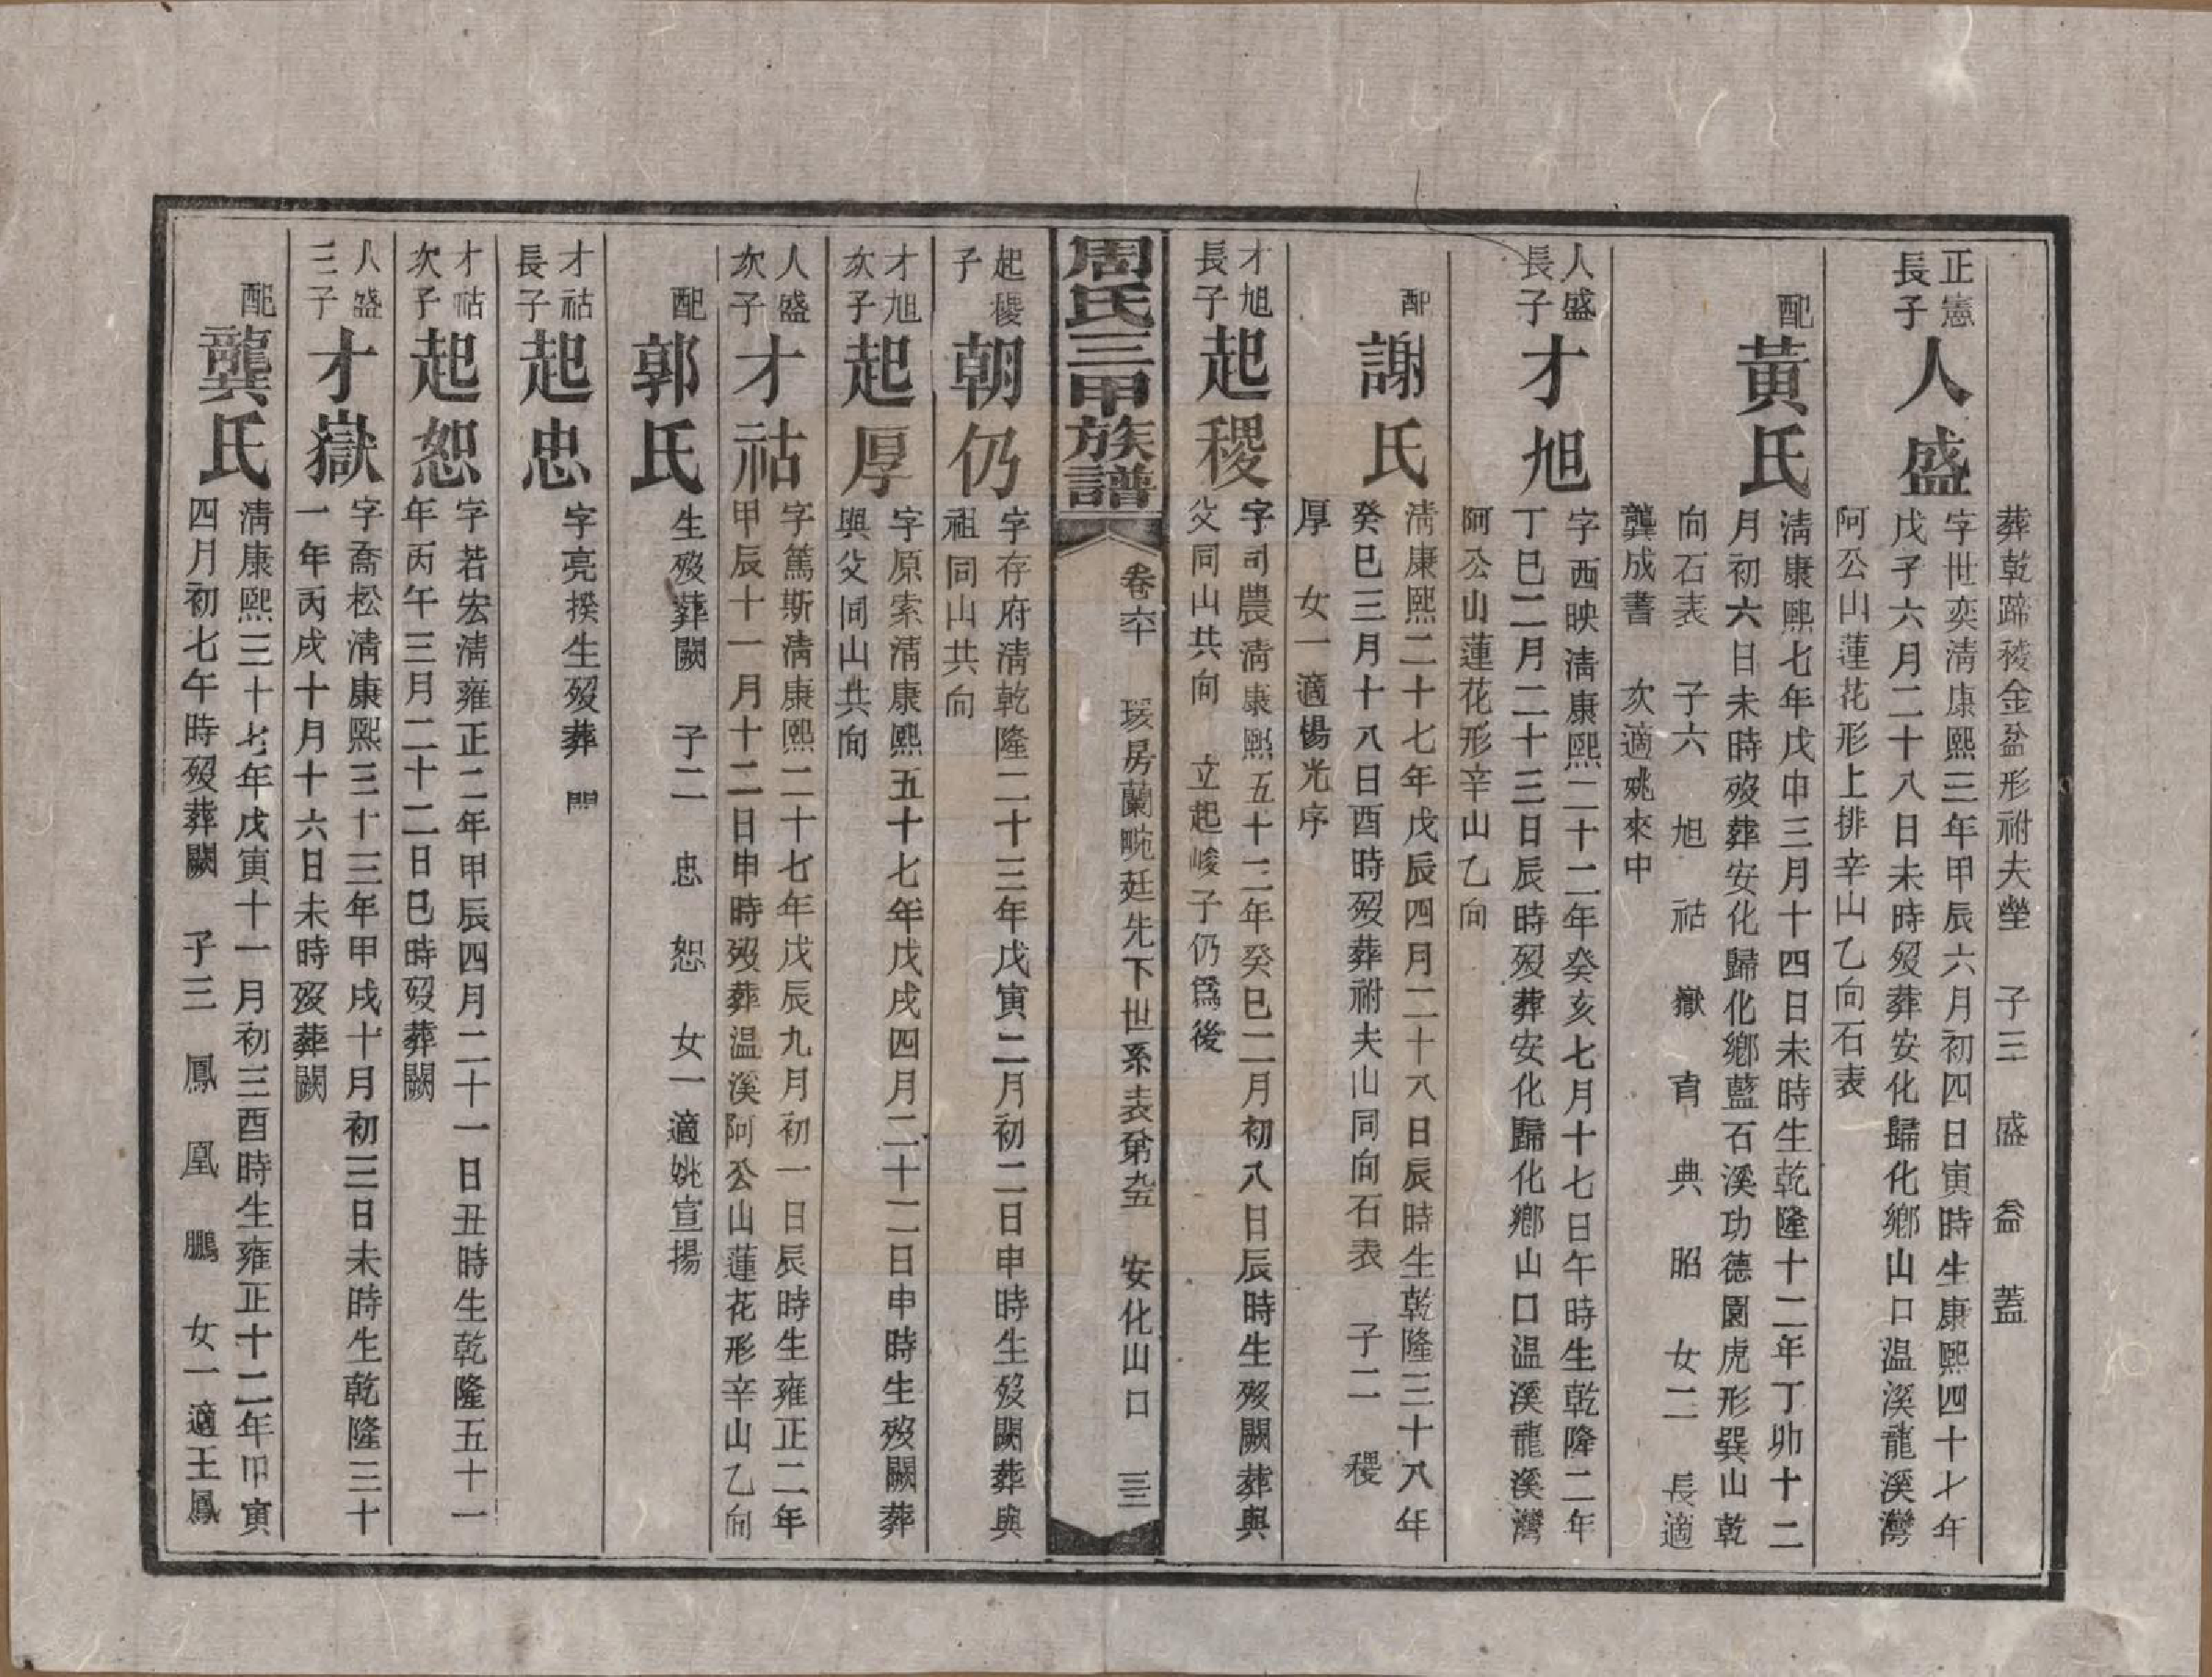 葬乾蹄稜金盆形祔夫塋　子三　盛　益　蓋
正憲
長子
人盛
字世奕淸康熙三年甲辰六月初四日寅時生康熙四十七年
戊子六月二十八日未時歿葬安化歸化鄕山口温溪龍溪灣
阿公山蓮花形上排辛山乙向石表
配
黃氏
淸康熙七年戊申三月十四日未時生乾隆十二年丁卯十二
月初六日未時歿葬安化歸化鄕藍石溪功德園虎形巽山乾
向石表　子六　旭　祜　嶽　育　典　昭　女二　長適
龔成書　次適姚來中
人盛
長子
才旭
字西映淸康熙二十二年癸亥七月十七日午時生乾隆二年
丁巳二月二十三日辰時歿葬安化歸化鄕山口温溪龍溪灣
阿公山蓮花形辛山乙向
配
謝氏
淸康熙二十七年戊辰四月二十八日辰時生乾隆三十八年
癸巳三月十八日酉時歿葬祔夫山同向石表　子二　稷
厚　女一適楊光序
才旭
長子
起稷
字司農淸康熙五十二年癸巳二月初八日辰時生歿闕葬與
父同山共向　立起峻子仍爲後
周氏三甲族譜
卷六十　瑗房蘭畹廷先下世系表第五　安化山口　三三
起稷
子
朝仍
字存府淸乾隆二十三年戊寅二月初二日申時生歿闕葬與
祖同山共向
才旭
次子
起厚
字原索淸康熙五十七年戊戌四月二十二日申時生歿闕葬
與父同山共向
人盛
次子
才祜
字篤斯淸康熙二十七年戊辰九月初一日辰時生雍正二年
甲辰十一月十二日申時歿葬温溪阿公山蓮花形辛山乙向
配
郭氏
生歿葬闕　子二　忠　恕　女一適姚宣揚
才祜
長子
起忠
字亮揆生歿葬
才祜
次子
起恕
字若宏淸雍正二年甲辰四月二十一日丑時生乾隆五十一
年丙午三月二十二日巳時歿葬闕
人盛
三子
才嶽
字喬松淸康熙三十三年甲戌十月初三日未時生乾隆三十
一年丙戌十月十六日未時歿葬闕
配
龔氏
淸康熙三十七年戊寅十一月初三酉時生雍正十二年甲寅
四月初七午時歿葬闕　子三　鳳　凰　鵬　女一適王鳳